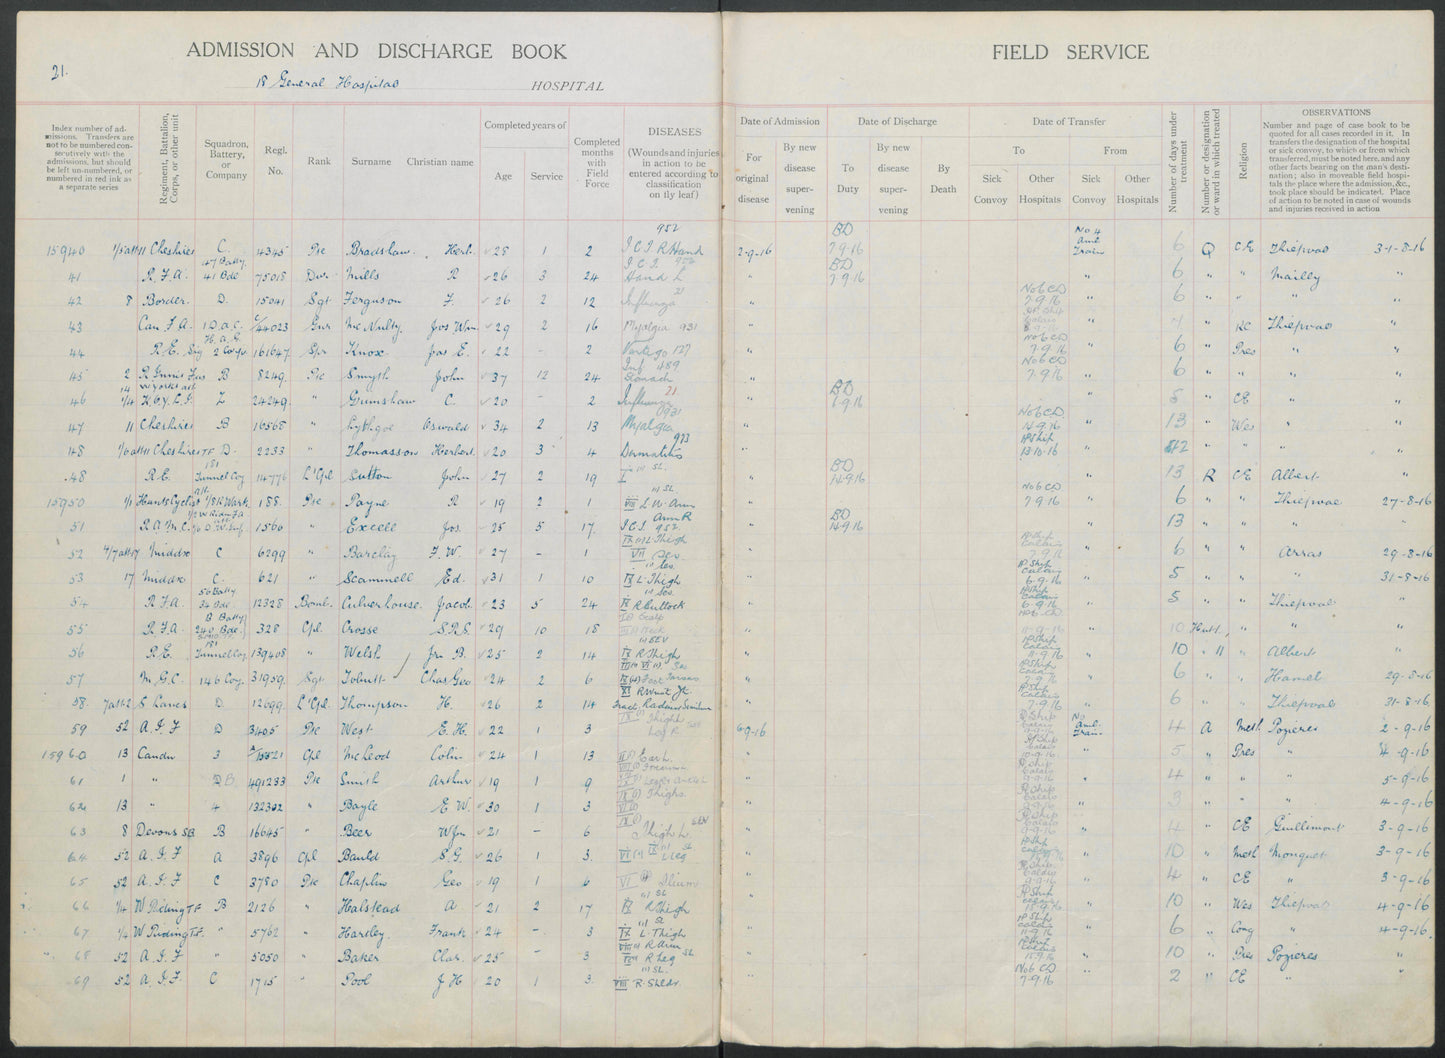 21.
ADMISSION AND DISCHARGE BOOK
FIELD SERVICE
18 General Hospital HOSPITAL
Index number of admissions. Transfers are not to be numbered consecutively with the admissions, but should be left un-numbered, or numbered in red ink as a separate series
Regiment, Battalion, Corps, or other unit
Squadron, Battery, or Company
Regl. No.
Rank
Surname
Christian name
Completed years of
Age
Service
Completed months with Field Force
DISEASES
(Wounds and injuries in action to be entered according to classification on fly leaf)
Date of Admission
For original disease
By new disease supervening
Date of Discharge
To Duty
By new disease supervening
By Death
Date of Transfer
To
From
Sick Convoy
Other Hospitals
Sick Convoy
Other Hospitals
Number of days under treatment
Number or designation or ward in which treated
Religion
OBSERVATIONS
Number and page of case book to be quoted for all cases recorded in it. In transfers the designation of the hospital or sick convoy, to which or from which transferred, must be noted here, and any other facts bearing on the man's destination; also in moveable field hospitals the place where the admission, &c., took place should be indicated. Place of action to be noted in case of wounds and injuries received in action
15940 Cheshires C. 4345 Pte Bradshaw. Herb. 28 1 2 I.C.T. R Hand 952 2-9-16 BD 7-9-16 No 4 Amb Train 6 Q CE Thiepval 31-8-16
41 R.F.A. 47 Batty. 41 Bde 75018 Dvr. Mills R 26 3 24 I.C.T. Hand L " BD 7-9-16 " 6 " " Mailly "
42 8 Border. D. 15041 Sgt Ferguson F. 26 2 12 Influenza 21 " No 6 CD 7-9-16 " 6 " " " "
43 Can F.A. 1 D.A.C. 44023 Gnr McNulty. Jos Wm. 29 2 16 Myalgia 931 " " " RC Thiepval "
44 R.E. Sig 161647. Spr Knox. Jas E. 22 - 2 Vertigo 127 " No 6 CD 7-9-16 " 6 " Pres " "
45 2 R Innis Fus B 8249. Pte Smyth John 37 12 24 Inf Stomach " No 6 CD 7-9-16 " 6 " " " "
46 1/4 K.O.Y.L.I. Z 24249. " Grimshaw C. 20 - 2 Influenza 21 " BD 6-9-16 " 5 " CE " "
47 11 Cheshires B 16568 " Lythgoe Oswald 34 2 13 Myalgia 931 " No 6 CD 14-9-16 " 13 " Wes " "
48 Cheshires TF D. 2233 " Thomasson Herbert. 20 3 4 Dermatitis 973 " H Ship 13-10-16 " 42 " " "
48 R.E. 181 Tunnel Coy 14776 L'Cpl Sutton John 27 2 19 " BD 14-9-16 " 13 R CE Albert "
15950 1/1 Hunts Cyclist 188. Pte Payne R 19 2 1 VIII L U. Arm " No 6 CD 7-9-16 " 6 " " Thiepval 27-8-16
51 R.A.M.C. 1560 " Excell Jos. 25 5 17. I.C.T. Arm R 952. " BD 14-9-16 " 13 " " " "
52 Middx C 6299 " Barclay F. W. 27 - 1 IX L. Thigh " H Ship Calais 7-9-16 " 6 " " Arras 29-8-16
53 17 Middx C. 621 " Scammell Ed. 31 1 10 IX L. Thigh " H Ship Calais 6-9-16 " 5 " " " 31-8-16
54 R.F.A. 56 Batty 34 Bde. 12328 Bomb. Culverhouse. Jacob. 23 5 24 R Buttock " H Ship Calais 6-9-16 " 5 " " Thiepval "
55 R.F.A. B Batty 240 Bde. 328 Cpl. Crosse S.R.S. 29 10 18 Scalp Neck " No 6 CD 11-9-16 " 10 Hutt. " " "
56 R.E. 181 Tunnel Coy. 139408 " Welsh Jn B. 25 2 14 IX R Thigh " H Ship Calais 11-9-16 " 10 " 11 " Albert "
57 M.G.C. 146 Coy. 31959. Sgt Chas Geo 24 2 6 Foot Tarsus " H Ship Calais 7-9-16 " 6 " " Hamel 29-8-16
58. S Lancs D 12099. L'Cpl. Thompson H. 26 2 14 XI R Wrist Jt. Fract. Radius " H Ship Calais 7-9-16 " 6 " " Thiepval 31-8-16
59 52 A.I.F D 3405 Pte West E. H. 22 1 3 Thigh Leg R 6-9-16 H Ship Calais 9-9-16 No Amb. Train. 4 A Meth Pozieres 2-9-16
15960 13 Candn 3 Cpl McLeod Colin 24 1 13 " H Ship Calais 10-9-16 " 5 " Pres " 4-9-16
61 1 " 491233 Pte Smith Arthur 19 1 9 " H Ship Calais 9-9-16 " 4 " " " 5-9-16
62 13 " 4 132302 " Bayle E W. 30 1 3 Thighs " H Ship Calais " 3 " " " 4-9-16
63 8 Devons SB B 16645 " Beer Wm 21 - 6 Thigh L. " H Ship Calais 9-9-16 " 4 " CE Guillemont 3-9-16
64 52 A.I.F A 3896 Cpl Bauld S.G. 26 1 3. L Leg " H Ship Calais " 10 " Meth Monquet 3-9-16
65 52 A.I.F C 3780 Pte Chaplin Geo 19 1 6 VI Ilium " H Ship Calais 9-9-16 " 4 " CE " 3-9-16
66 1/4 W Riding TF B 2126 " Halstead A. 21 2 17 IX R Thigh " H Ship Calais 15-9-16 " 10 " Wes Thiepval 4-9-16
67. 1/4 W Riding T.F. " 5762 " Hartley. Frank 24 - 3 IX L. Thigh " H Ship Calais 11-9-16 " 6 " Cong " 4-9-16.
68 52 A.I.F " 5050 " Baker Clar. 25 - 3 R Arm R Leg " H Ship Calais 15-9-16 " 10 " Pres Pozieres "
69 52 A.I.F. C 1715 " Pool J H 20 1 3. VIII R. Shldr " No 6 CD 7-9-16 " 2 " CE " "